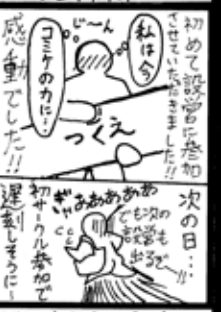 初めて設営に参加
させていただきました!!
私は今
じ〜ん
コミケの力に…!
つくえ
感動でした!!
次の日…
でも次の
設営も
出るぞ!!
ぎゃああああああ
初サークル参加で
遅刻しそうに〜